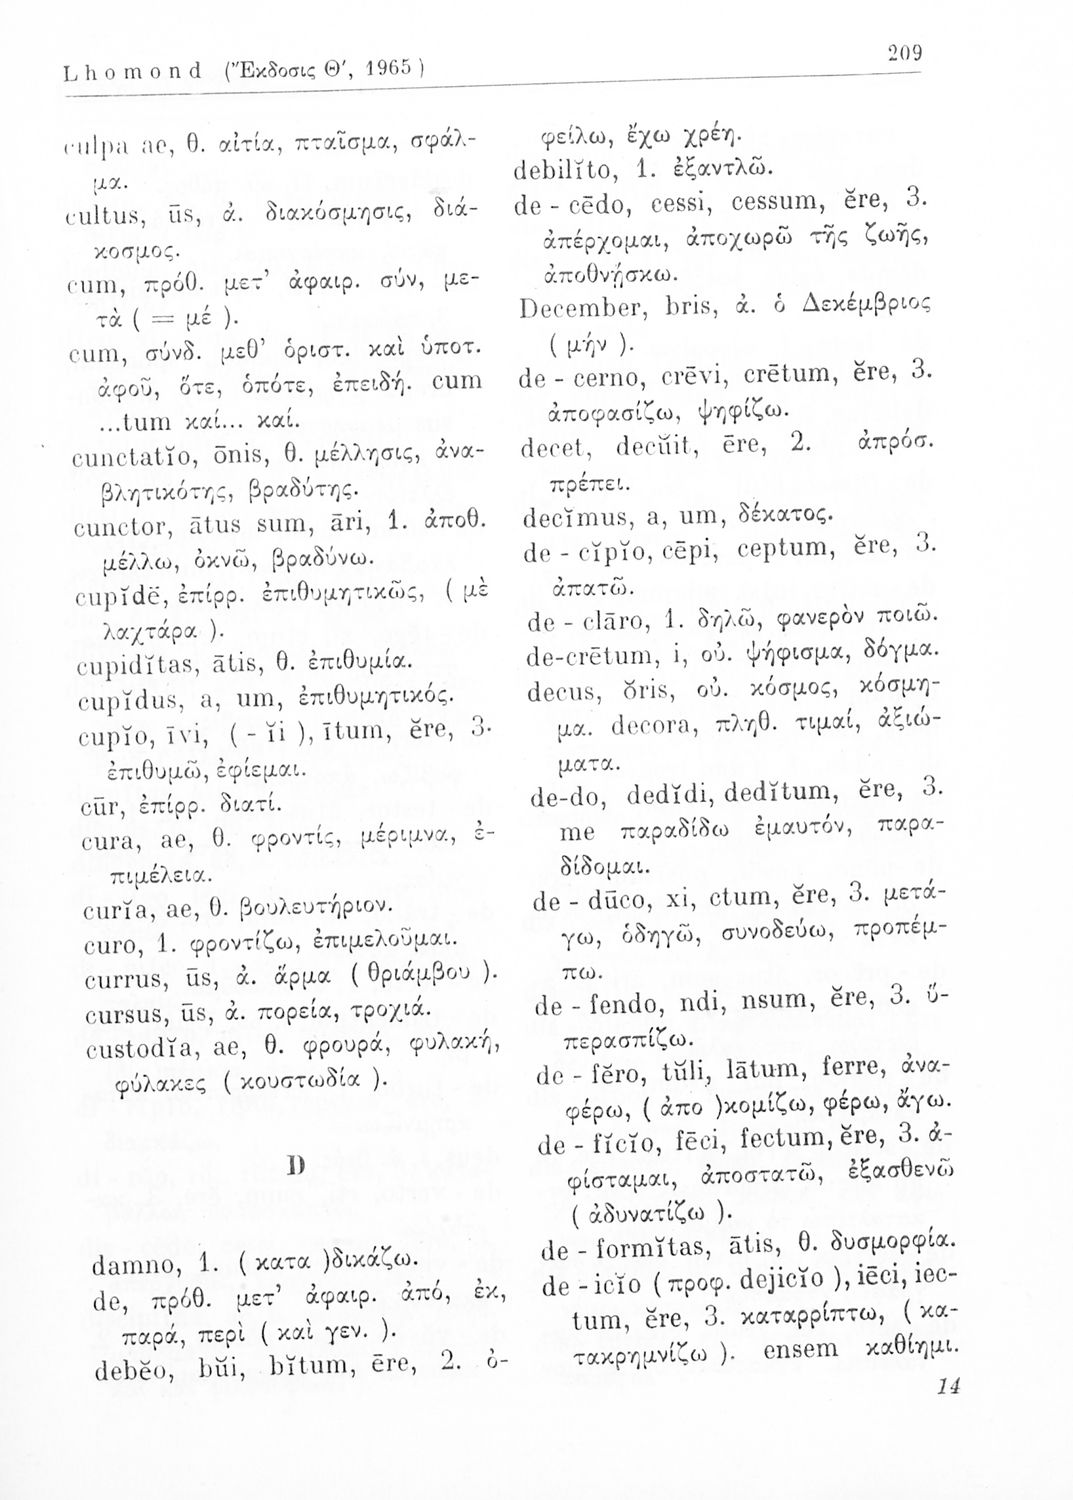 Lhomond (Ἔκδοσις Θ', 1965)
209
culpa ae, θ. αἰτία, πταῖσμα, σφάλ-
μα.
cultus, ūs, ἀ. διακόσμησις, διά-
κοσμος.
cum, πρόθ. μετ' ἀφαιρ. σύν, με-
τὰ ( = μέ ).
cum, σύνδ. μεθ' ὁριστ. καὶ ὑποτ.
ἀφοῦ, ὅτε, ὁπότε, ἐπειδή. cum
...tum καί... καί.
cunctatĭo, ōnis, θ. μέλλησις, ἀνα-
βλητικότης, βραδύτης.
cunctor, ātus sum, āri, 1. ἀποθ.
μέλλω, ὀκνῶ, βραδύνω.
cupĭdē, ἐπίρρ. ἐπιθυμητικῶς, ( μὲ
λαχτάρα ).
cupidĭtas, ātis, θ. ἐπιθυμία.
cupĭdus, a, um, ἐπιθυμητικός.
cupĭo, īvi, ( - ĭi ), ītum, ĕre, 3.
ἐπιθυμῶ, ἐφίεμαι.
cūr, ἐπίρρ. διατί.
cura, ae, θ. φροντίς, μέριμνα, ἐ-
πιμέλεια.
curĭa, ae, θ. βουλευτήριον.
curo, 1. φροντίζω, ἐπιμελοῦμαι.
currus, ūs, ἀ. ἅρμα ( θριάμβου ).
cursus, ūs, ἀ. πορεία, τροχιά.
custodĭa, ae, θ. φρουρά, φυλακή,
φύλακες ( κουστωδία ).
D
damno, 1. ( κατα )δικάζω.
de, πρόθ. μετ' ἀφαιρ. ἀπό, ἐκ,
παρά, περὶ ( καὶ γεν. ).
debĕo, bŭi, bĭtum, ēre, 2. ὀ-
φείλω, ἔχω χρέη.
debilĭto, 1. ἐξαντλῶ.
de - cēdo, cessi, cessum, ĕre, 3.
ἀπέρχομαι, ἀποχωρῶ τῆς ζωῆς,
ἀποθνῄσκω.
December, bris, ἀ. ὁ Δεκέμβριος
( μήν ).
de - cerno, crēvi, crētum, ĕre, 3.
ἀποφασίζω, ψηφίζω.
decet, decŭit, ēre, 2. ἀπρόσ.
πρέπει.
decĭmus, a, um, δέκατος.
de - cĭpĭo, cēpi, ceptum, ĕre, 3.
ἀπατῶ.
de - clāro, 1. δηλῶ, φανερὸν ποιῶ.
de-crētum, i, οὐ. ψήφισμα, δόγμα.
decus, ŏris, οὐ. κόσμος, κόσμη-
μα. decora, πληθ. τιμαί, ἀξιώ-
ματα.
de-do, dedĭdi, dedĭtum, ĕre, 3.
me παραδίδω ἐμαυτόν, παρα-
δίδομαι.
de - dūco, xi, ctum, ĕre, 3. μετά-
γω, ὁδηγῶ, συνοδεύω, προπέμ-
πω.
de - fendo, ndi, nsum, ĕre, 3. ὑ-
περασπίζω.
de - fĕro, tŭli, lātum, ferre, ἀνα-
φέρω, ( ἀπο )κομίζω, φέρω, ἄγω.
de - fĭcĭo, fēci, fectum, ĕre, 3. ἀ-
φίσταμαι, ἀποστατῶ, ἐξασθενῶ
( ἀδυνατίζω ).
de - formĭtas, ātis, θ. δυσμορφία.
de - icĭo ( προφ. dejicĭo ), iēci, iec-
tum, ĕre, 3. καταρρίπτω, ( κα-
τακρημνίζω ). ensem καθίημι.
14